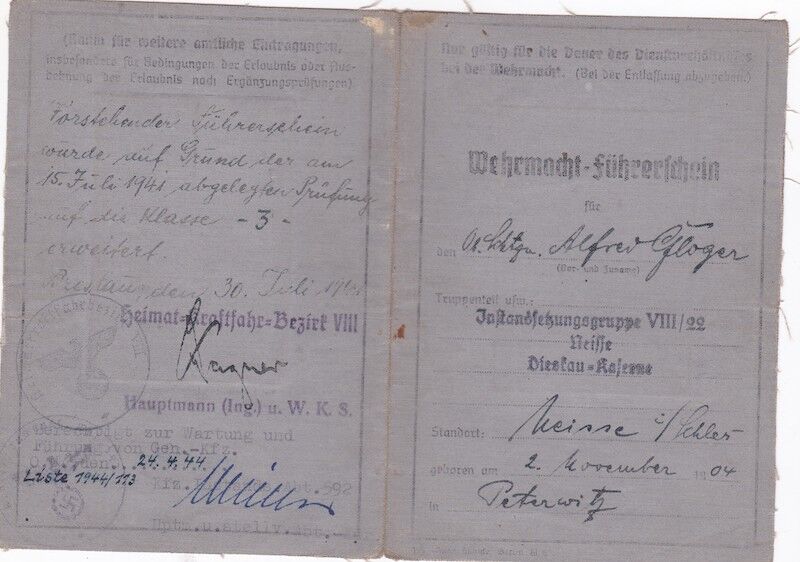 (Raum für weitere amtliche Eintragungen,
insbesondere für Bedingungen der Erlaubnis oder Aus-
dehnung der Erlaubnis nach Ergänzungsprüfungen)
Vorstehender Führerschein
wurde auf Grund der am
15. Juli 1941 abgelegten Prüfung
auf die Klasse - 3 -
erweitert.
Breslau, den 30. Juli 1941
Heimat-Kraftfahr-Bezirk VIII
Wagner
Hauptmann (Ing.) u. W. K. S.
Berechtigt zur Wartung und
Führung von Gen.-Kfz.
O.U., den 24.4.44
Liste 1944/113
Kfz. Abt. 592
Hptm.u.stellv.
Nur gültig für die Dauer des Dienstverhältnisses
bei der Wehrmacht. (Bei der Entlassung abzugeben.)
Wehrmacht-Führerschein
für
den Alfred Pfloger
(Vor- und Zuname)
Truppenteil usw.:
Instandsetzungsgruppe VIII/22
Neisse
Dieskau-Kaserne
Standort: Neisse i/Schles
geboren am 2. November 1904
in Peterwitz